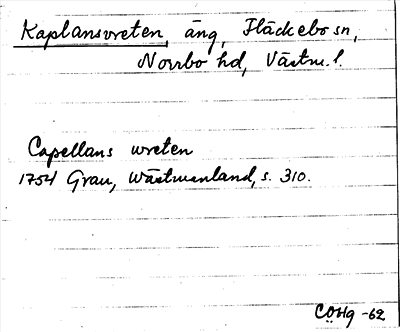 Kaplansvreten, äng, Fläckebo sn,
Norrbo hd, Västm. l.
Capellans wreten
1754 Grau, Wästmanland, s. 310.
COHg -62